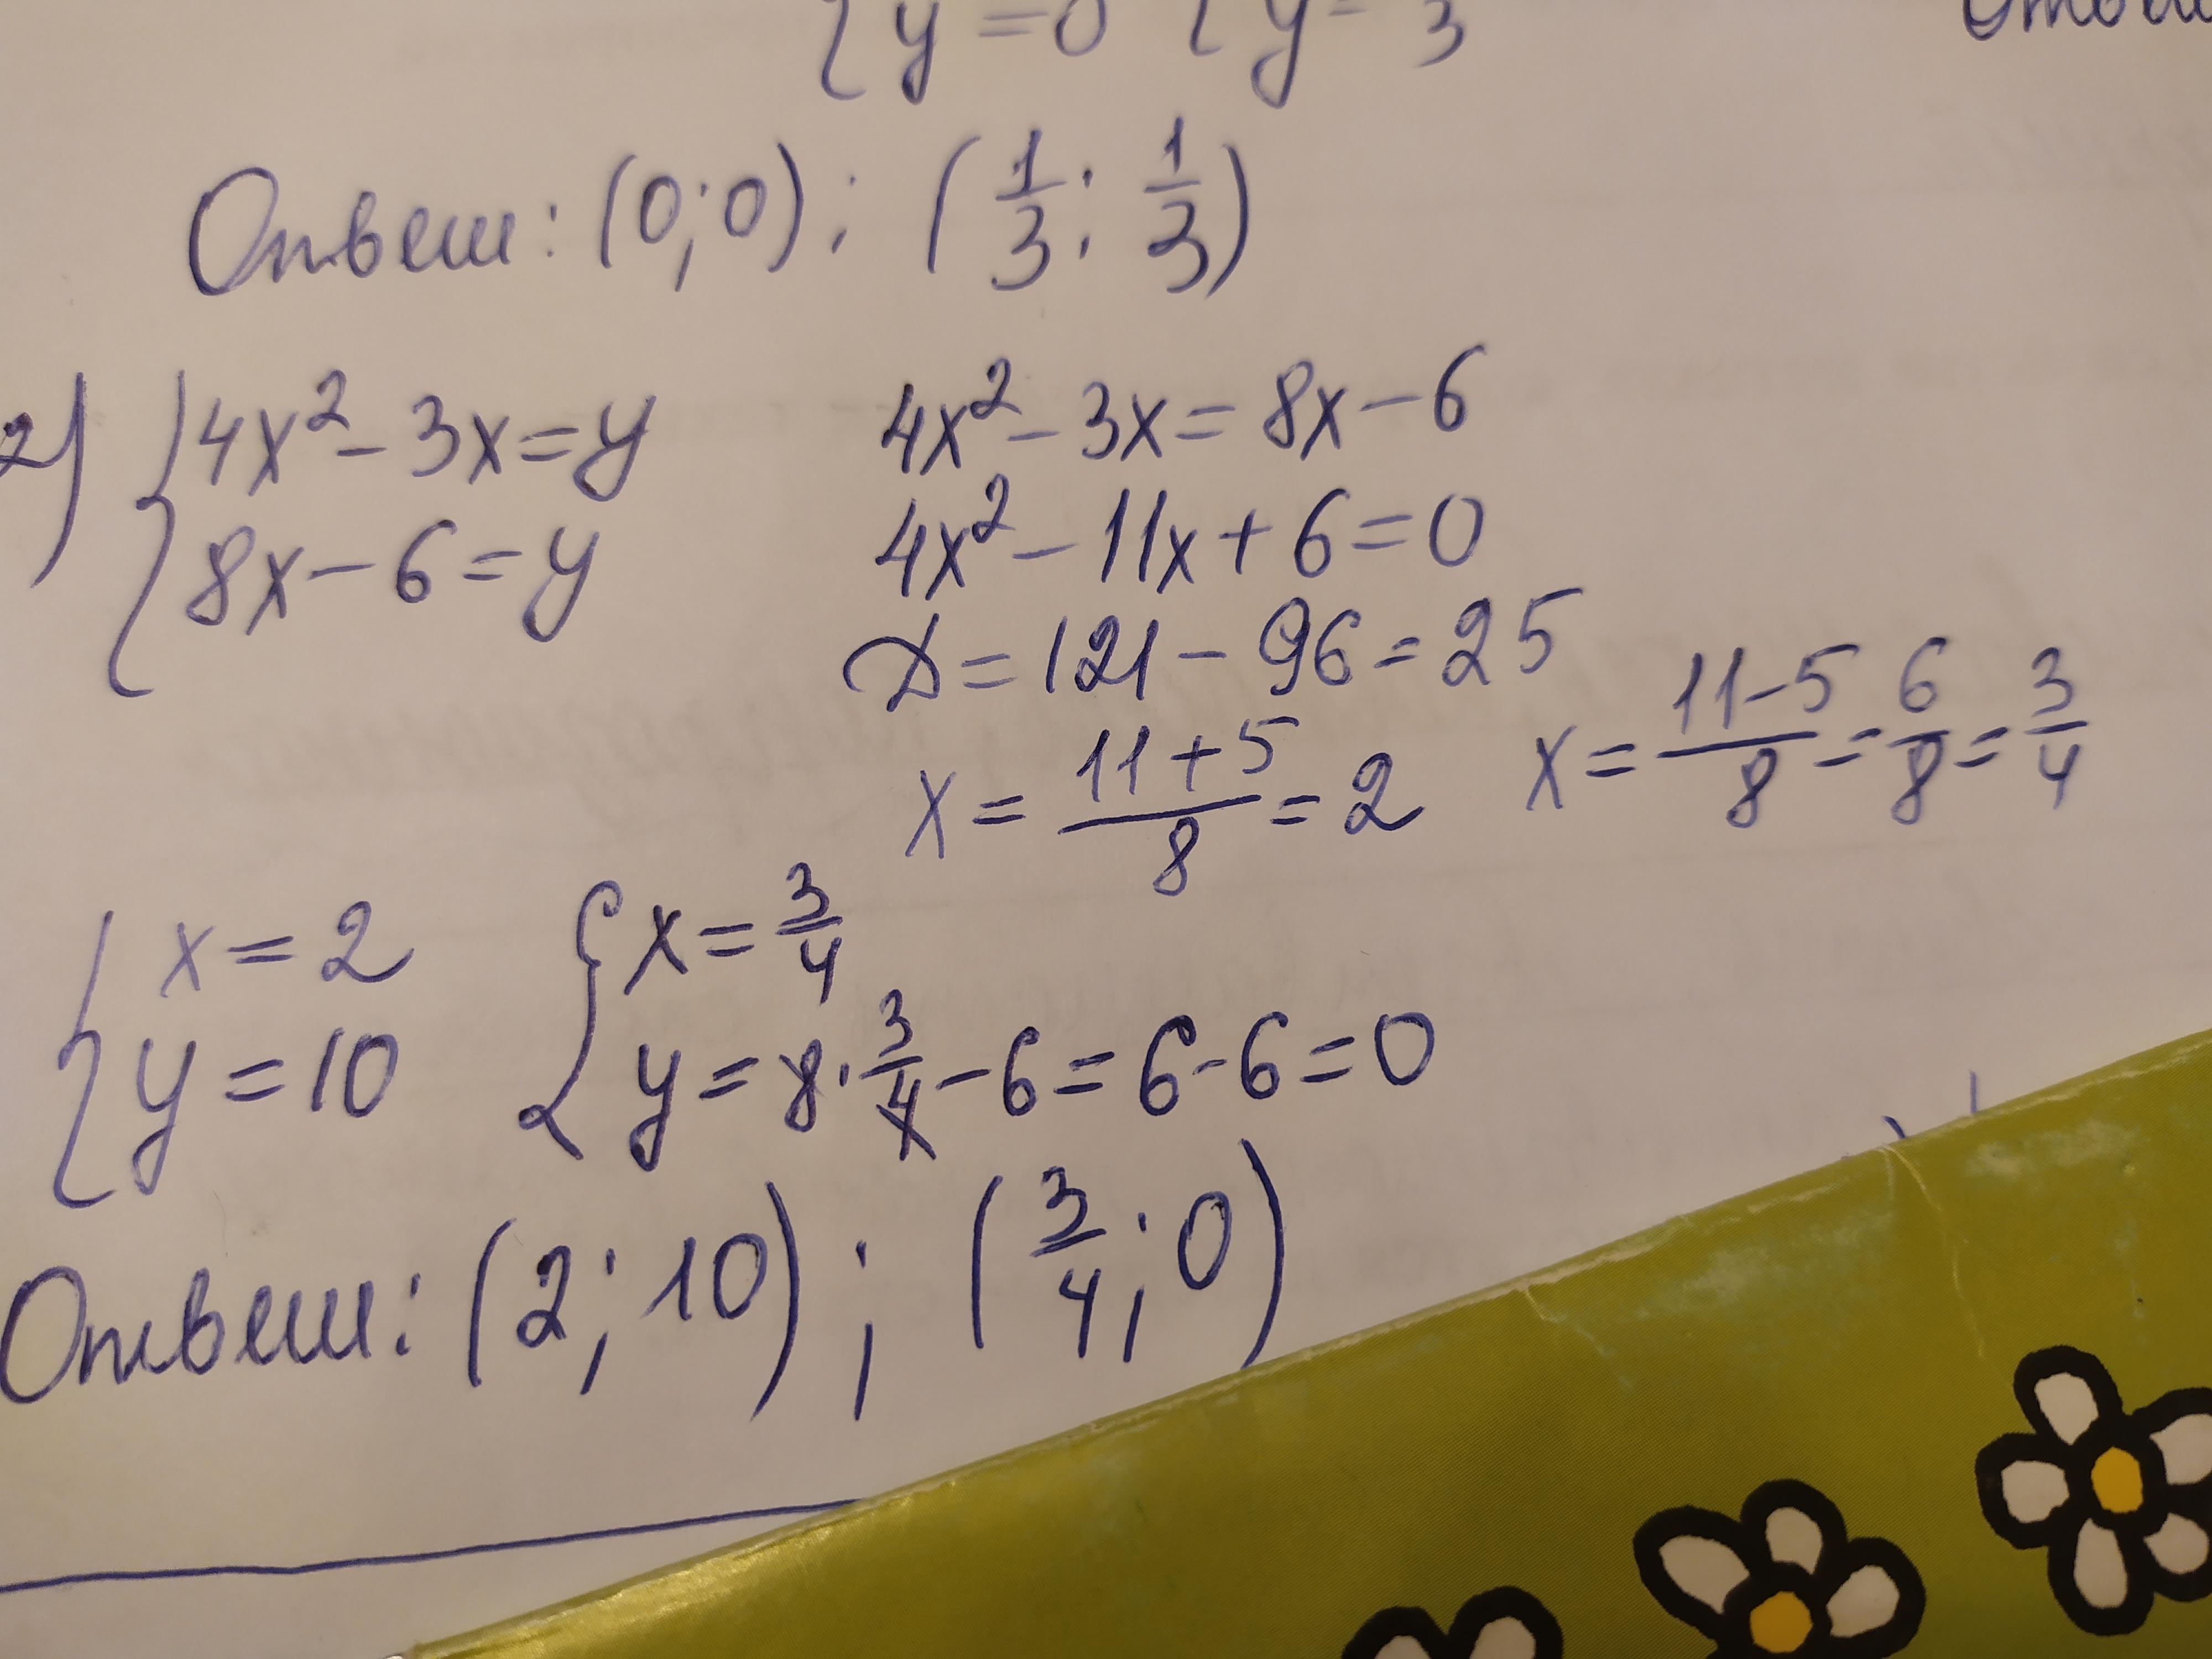 { y = 0 { y = 3
Ответ: (0; 0); (1/3; 1/3)
2) { 4x² - 3x = y
8x - 6 = y
4x² - 3x = 8x - 6
4x² - 11x + 6 = 0
D = 121 - 96 = 25
x = (11 + 5)/8 = 2 x = (11 - 5)/8 = 6/8 = 3/4
{ x = 2
y = 10
{ x = 3/4
y = 8 · 3/4 - 6 = 6 - 6 = 0
Ответ: (2; 10); (3/4; 0)